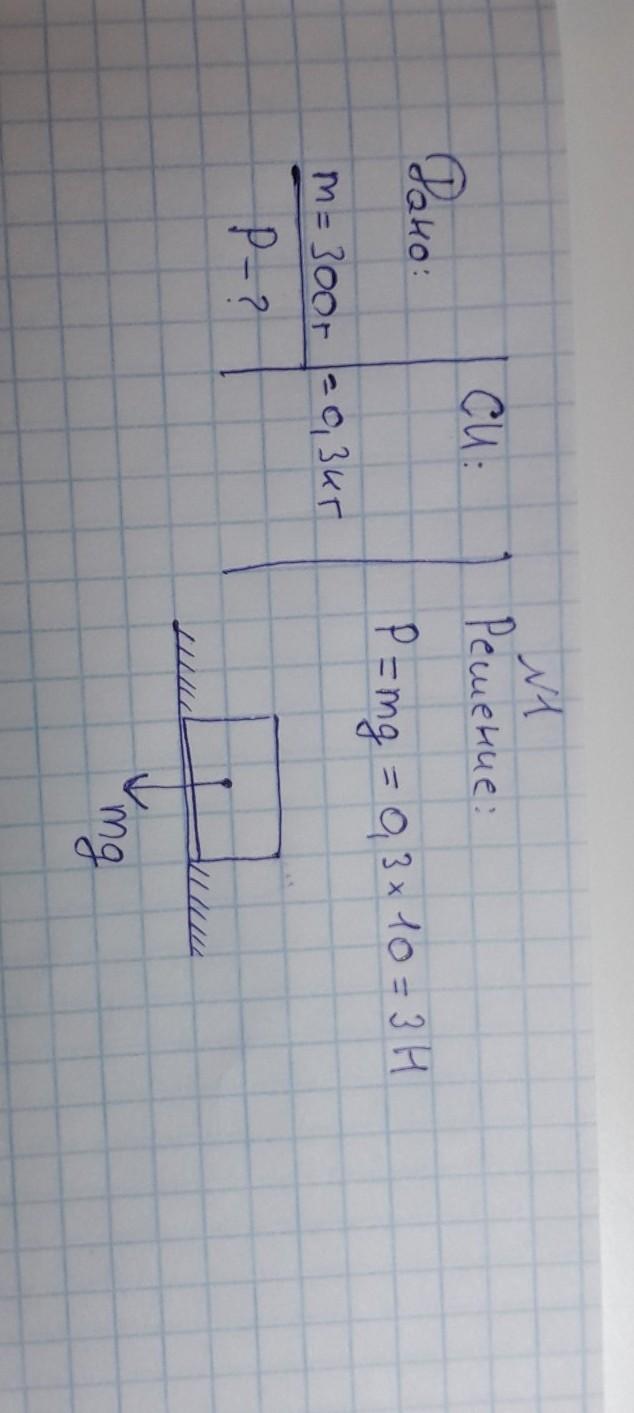 №1
Дано:
m = 300г
P - ?
СИ:
= 0,3кг
Решение:
P = mg = 0,3 × 10 = 3 Н
mg